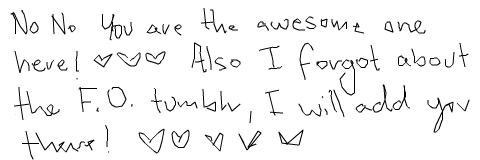 No No You are the awesome one
here! ♡♡♡ Also I forgot about
the F.O. tumblr, I will add you
there! ♡♡♡♡♡